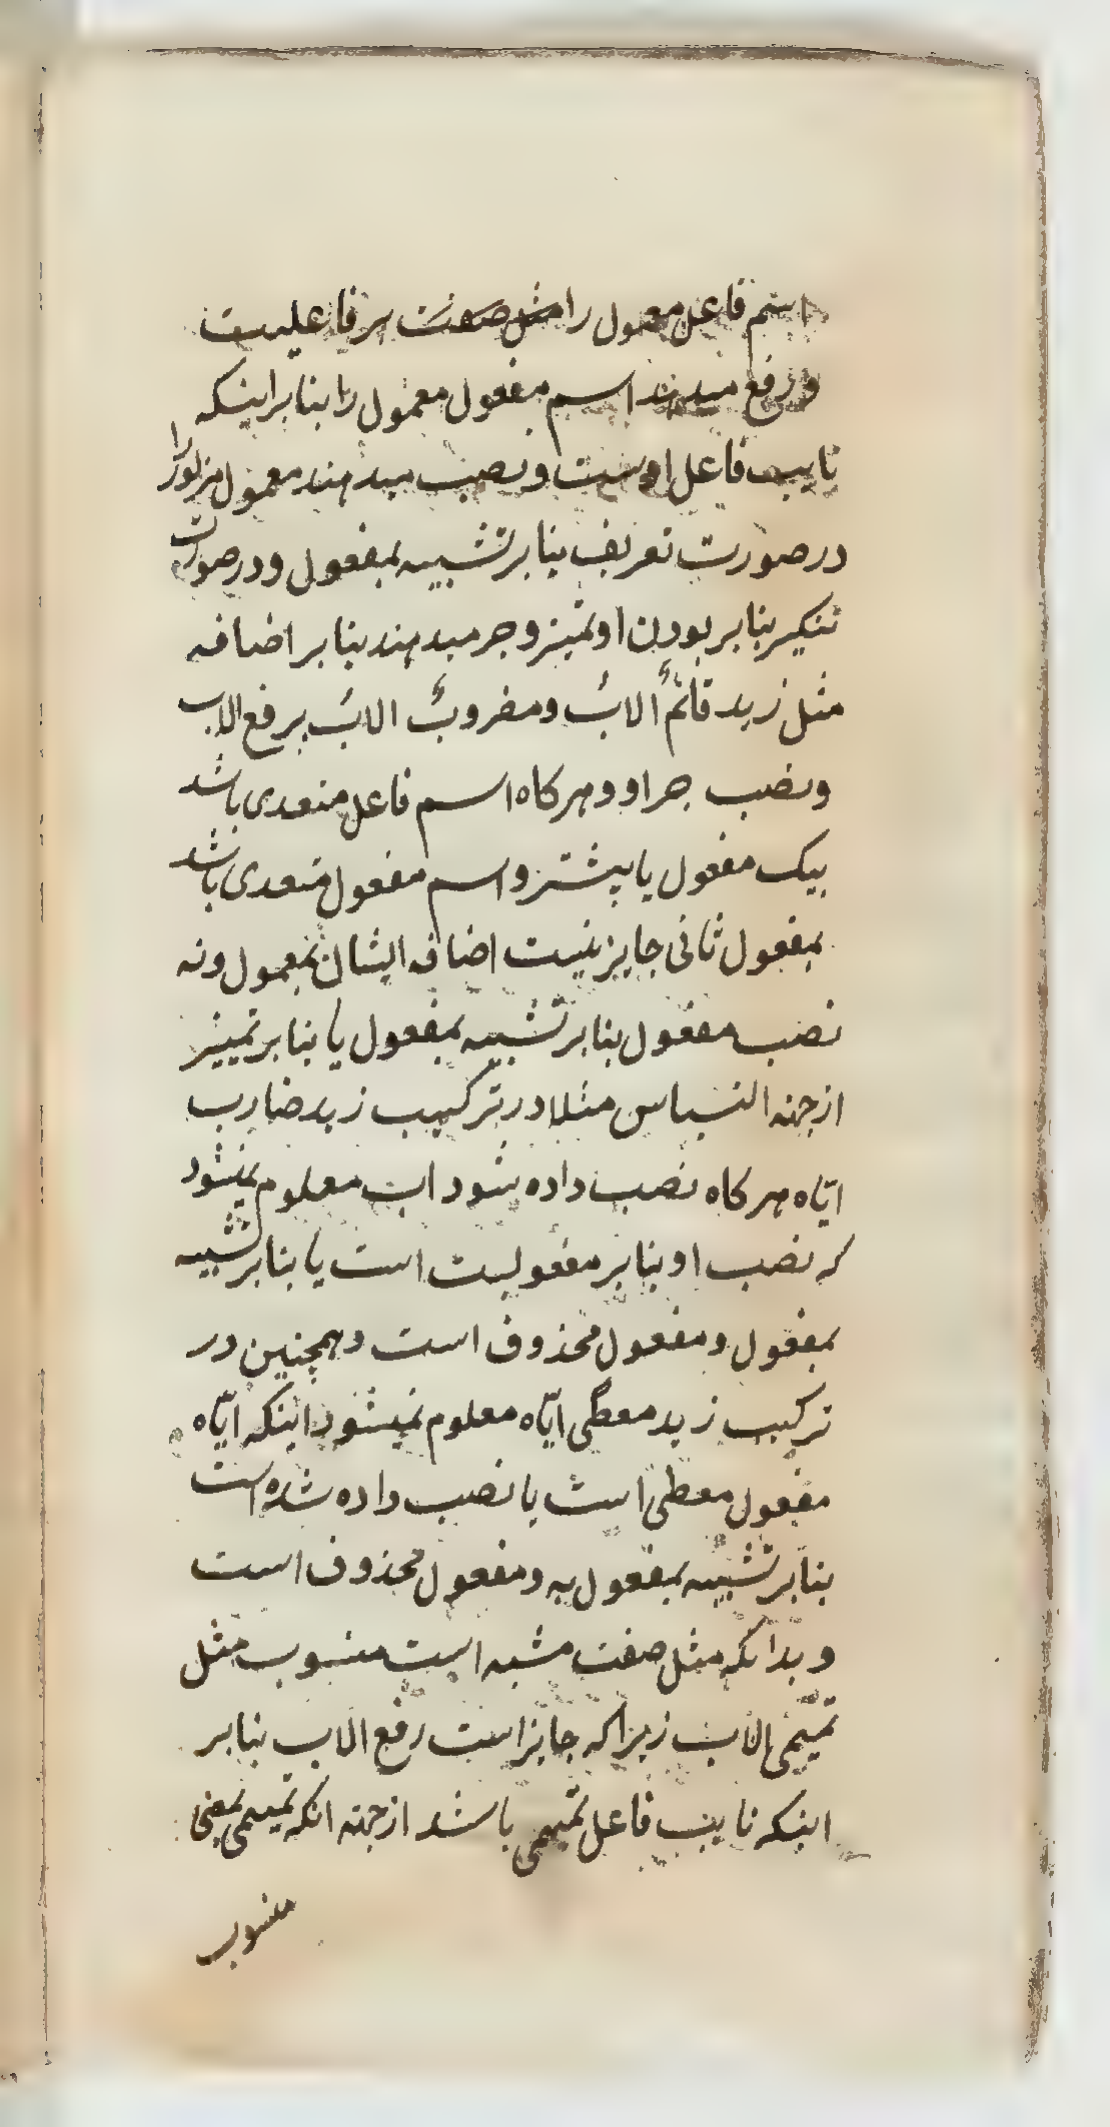 اسم فاعل معمول را مثل صفت بر فاعلیت
و رفع میدهند اسم مفعول معمول را بنابر اینکه
نایب فاعل اوست و نصب میدهند معمول مزبور را
در صورت تعریف بنابر تشبیه بمفعول و در صورت
تنکیر بنابر بودن او تمیز و جر میدهند بنابر اضافه
مثل زید قائمٌ الابُ و مضروبٌ الابُ برفع الاب
و نصب جر او و هرکاه اسم فاعل متعدی باشد
بیک مفعول یا بیشتر و اسم مفعول متعدی باشد
بمفعول ثانی جایز نیست اضافه ایشان بمعمول و نه
نصب مفعول بنابر تشبیه بمفعول یا بنابر تمییز
از جهته التباس مثلا در ترکیب زید ضارب
ایّاه هرکاه نصب داده شود اب معلوم نمیشود
که نصب او بنابر مفعولیت است یا بنابر تشبیه
بمفعول و مفعول محذوف است و همچنین در
ترکیب زید معطی ایّاه معلوم نمیشود اینکه ایّاه
مفعول معطی است یا نصب داده شده است
بنابر تشبیه بمفعول به و مفعول محذوف است
و بدانکه مثل صفت مشبه است منسوب مثل
تمیمی الاب زیرا که جایز است رفع الاب بنابر
اینکه نایب فاعل تمیمی باشد از جهته انکه تمیمی بمعنی
منسوب